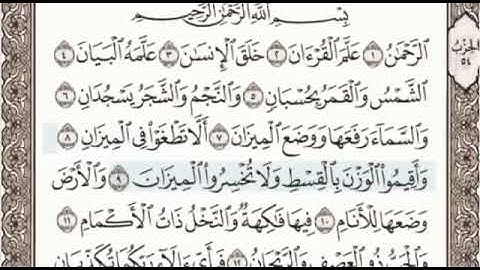 بِسْمِ ٱللَّهِ ٱلرَّحْمَٰنِ ٱلرَّحِيمِ
ٱلرَّحْمَٰنُ ١ عَلَّمَ ٱلْقُرْءَانَ ٢ خَلَقَ ٱلْإِنسَٰنَ ٣ عَلَّمَهُ ٱلْبَيَانَ ٤
ٱلشَّمْسُ وَٱلْقَمَرُ بِحُسْبَانٍ ٥ وَٱلنَّجْمُ وَٱلشَّجَرُ يَسْجُدَانِ ٦
وَٱلسَّمَآءَ رَفَعَهَا وَوَضَعَ ٱلْمِيزَانَ ٧ أَلَّا تَطْغَوْا۟ فِى ٱلْمِيزَانِ ٨
وَأَقِيمُوا۟ ٱلْوَزْنَ بِٱلْقِسْطِ وَلَا تُخْسِرُوا۟ ٱلْمِيزَانَ ٩ وَٱلْأَرْضَ
وَضَعَهَا لِلْأَنَامِ ١٠ فِيهَا فَٰكِهَةٌ وَٱلنَّخْلُ ذَاتُ ٱلْأَكْمَامِ ١١
وَٱلْحَبُّ ذُو ٱلْعَصْفِ وَٱلرَّيْحَانُ ١٢ فَبِأَىِّ ءَالَآءِ رَبِّكُمَا تُكَذِّبَانِ
الحزب
٥٤